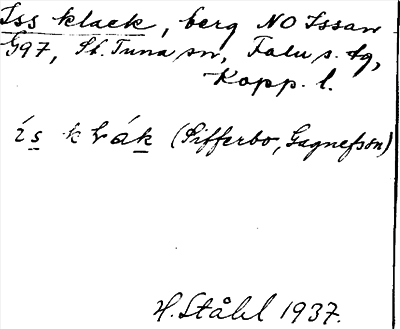 Iss klack, berg NO Issan
G97, St. Tuna sn, Falu s. tg,
Kopp. l.
(Sifferbo, Gagnefssn)
H. Ståhl 1937.